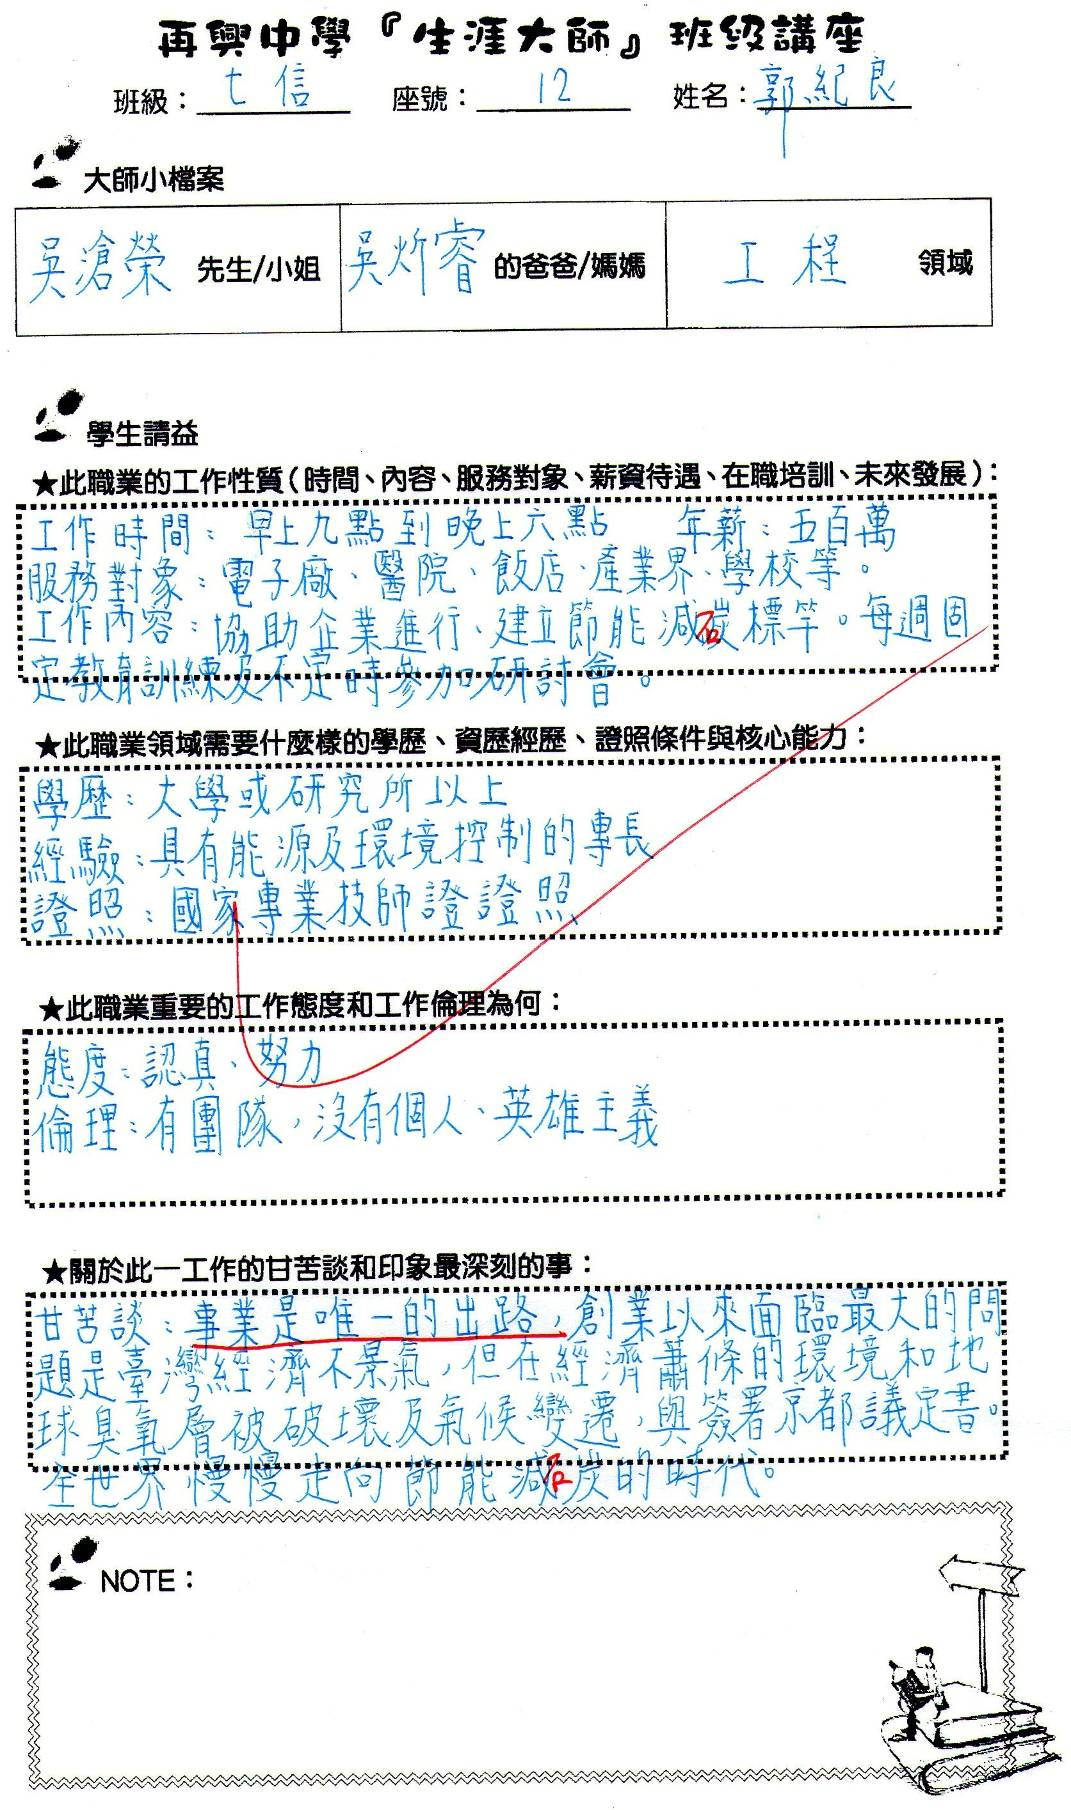 再興中學『生涯大師』班級講座
班級：七信 座號：12 姓名：郭紀良
大師小檔案
吳滄榮 先生/小姐 吳炘睿 的爸爸/媽媽 工程 領域
學生請益
★此職業的工作性質（時間、內容、服務對象、薪資待遇、在職培訓、未來發展）：
工作時間：早上九點到晚上六點 年薪：五百萬
服務對象：電子廠、醫院、飯店、產業界、學校等。
工作內容：協助企業進行、建立節能減碳標竿。每週固
定教育訓練及不定時參加研討會。
★此職業領域需要什麼樣的學歷、資歷經歷、證照條件與核心能力：
學歷：大學或研究所以上
經驗：具有能源及環境控制的專長
證照：國家專業技師證證照
★此職業重要的工作態度和工作倫理為何：
態度：認真、努力
倫理：有團隊，沒有個人、英雄主義
★關於此一工作的甘苦談和印象最深刻的事：
甘苦談：事業是唯一的出路，創業以來面臨最大的問
題是臺灣經濟不景氣，但在經濟蕭條的環境和地
球臭氧層被破壞及氣候變遷，與簽署京都議定書。
全世界慢慢走向節能減碳的時代。
NOTE：